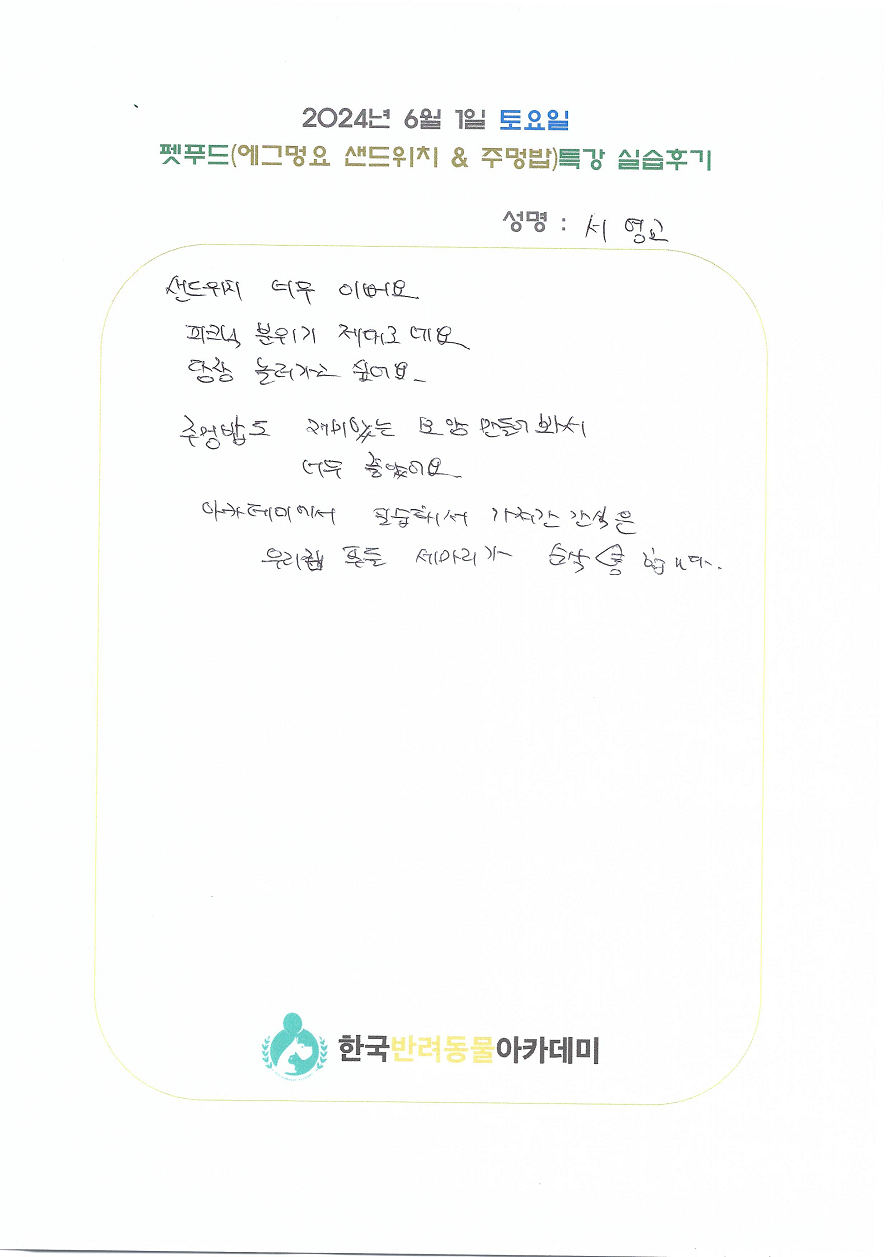 2024년 6월 1일 토요일
펫푸드(에그멍요 샌드위치 & 주멍밥)특강 실습후기
성명 : 서영교
샌드위치 너무 이뻐요
피크닉 분위기 제대로 네요
당장 놀러가고 싶어요
주멍밥도 재미있는 모양 만들어봐서
너무 좋았어요
아카데미에서 실습해서 가져간 간식은
우리집 푸들 세마리가 순삭 합니다.
한국반려동물아카데미